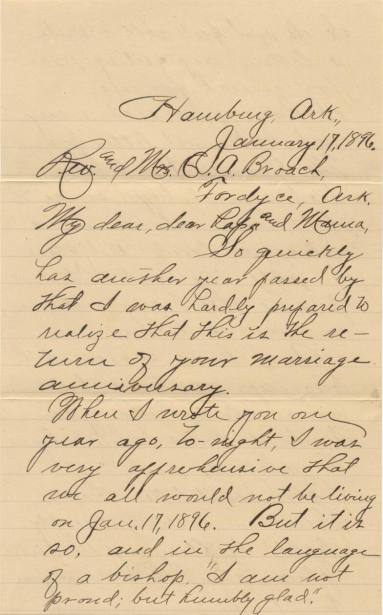 Hamburg, Ark.,
January 17, 1896.
Rev. and Mrs. E. A. Broach,
Fordyce, Ark.
My dear, dear Papa and Mama,
So quickly
has another year passed by
that I was hardly prepared to
realize that this is the re-
turn of your marriage
anniversary.
When I wrote you one
year ago, to-night, I was
very apprehensive that
we all would not be living
on Jan. 17, 1896. But it is
so, and in the language
of a bishop, "I am not
proud; but humbly glad."